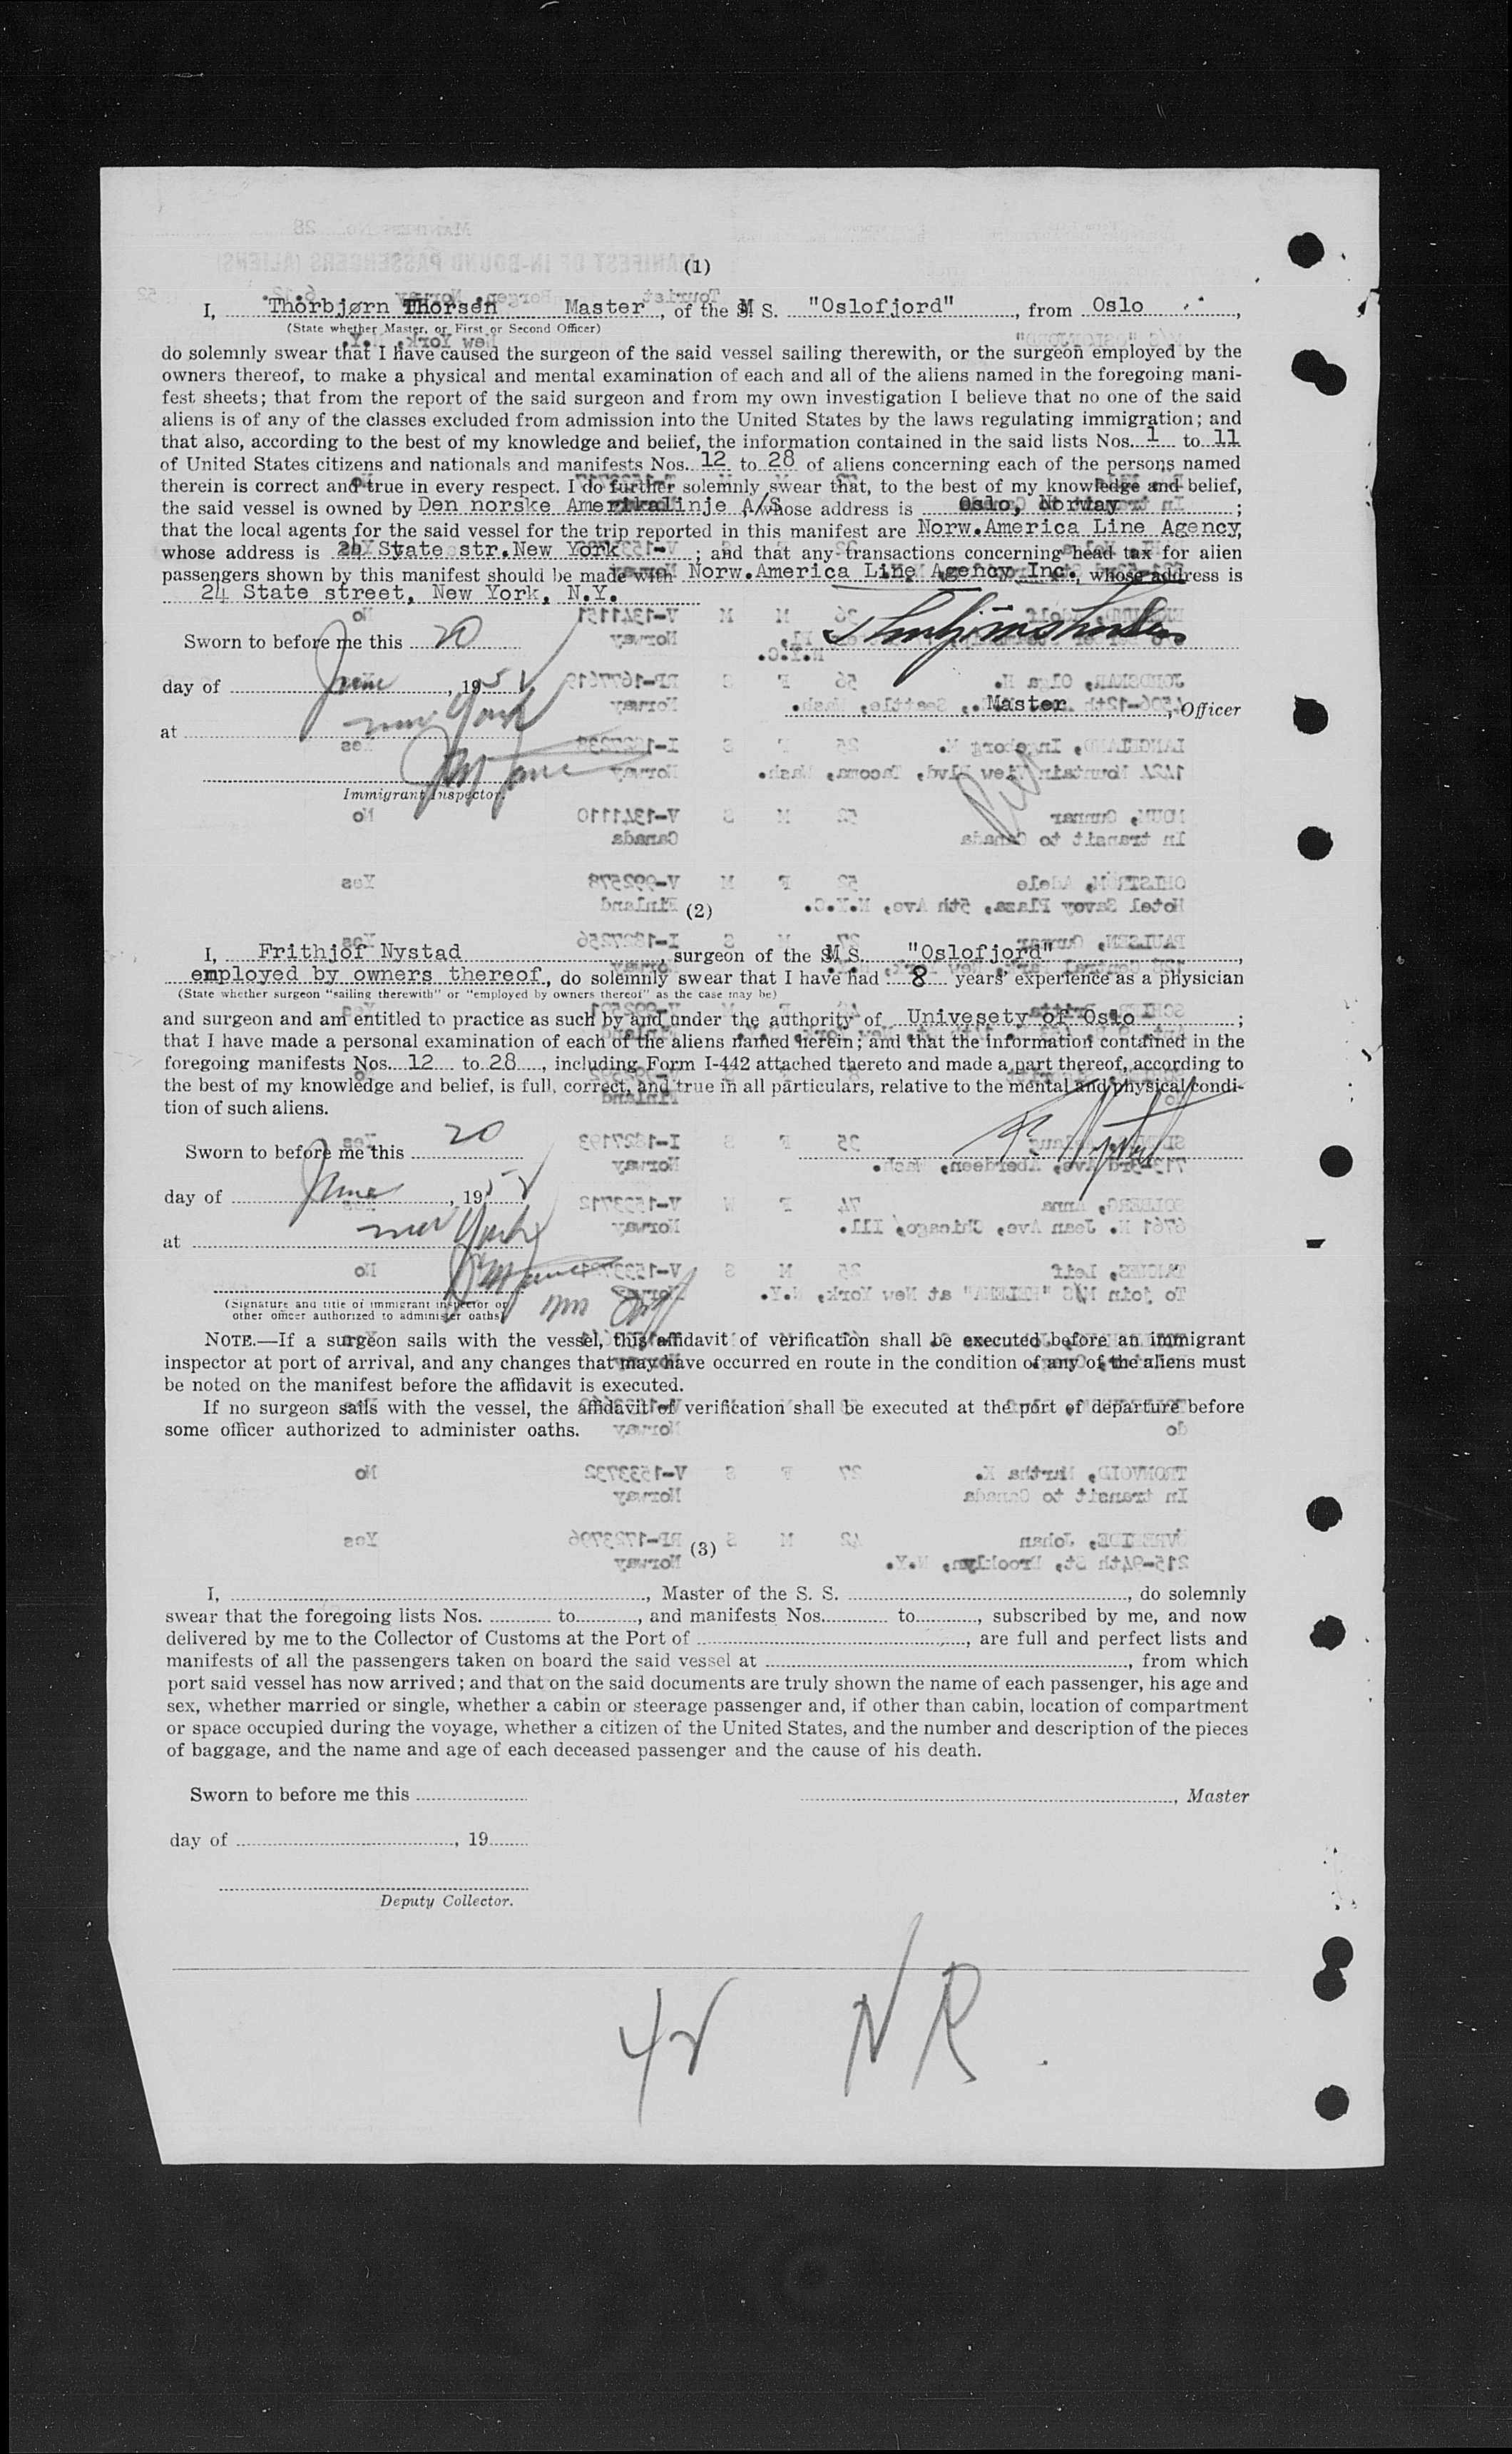 (1)
I, Thorbjørn Thorsen Master, of the M S. "Oslofjord", from Oslo,
(State whether Master, or First or Second Officer)
do solemnly swear that I have caused the surgeon of the said vessel sailing therewith, or the surgeon employed by the
owners thereof, to make a physical and mental examination of each and all of the aliens named in the foregoing mani-
fest sheets; that from the report of the said surgeon and from my own investigation I believe that no one of the said
aliens is of any of the classes excluded from admission into the United States by the laws regulating immigration; and
that also, according to the best of my knowledge and belief, the information contained in the said lists Nos. 1 to 11
of United States citizens and nationals and manifests Nos. 12 to 28 of aliens concerning each of the persons named
therein is correct and true in every respect. I do further solemnly swear that, to the best of my knowledge and belief,
the said vessel is owned by Den norske Amerikalinje A/S, whose address is Oslo, Norway;
that the local agents for the said vessel for the trip reported in this manifest are Norw.America Line Agency,
whose address is 24 State str.New York; and that any transactions concerning head tax for alien
passengers shown by this manifest should be made with Norw.America Line Agency Inc., whose address is
24 State street, New York, N.Y.
Sworn to before me this 20
day of June, 1952
at New York
Master, Officer
Immigrant Inspector.
(2)
I, Frithjof Nystad, surgeon of the M S. "Oslofjord",
employed by owners thereof, do solemnly swear that I have had 8 years' experience as a physician
(State whether surgeon "sailing therewith" or "employed by owners thereof" as the case may be)
and surgeon and am entitled to practice as such by and under the authority of Univesety of Oslo;
that I have made a personal examination of each of the aliens named herein; and that the information contained in the
foregoing manifests Nos. 12 to 28, including Form I-442 attached thereto and made a part thereof, according to
the best of my knowledge and belief, is full, correct, and true in all particulars, relative to the mental and physical condi-
tion of such aliens.
Sworn to before me this 20
day of June, 1952
at New York
(Signature and title of immigrant inspector or
other officer authorized to administer oaths)
NOTE.—If a surgeon sails with the vessel, this affidavit of verification shall be executed before an immigrant
inspector at port of arrival, and any changes that may have occurred en route in the condition of any of the aliens must
be noted on the manifest before the affidavit is executed.
If no surgeon sails with the vessel, the affidavit of verification shall be executed at the port of departure before
some officer authorized to administer oaths.
(3)
I, , Master of the S. S. , do solemnly
swear that the foregoing lists Nos. to , and manifests Nos. to , subscribed by me, and now
delivered by me to the Collector of Customs at the Port of , are full and perfect lists and
manifests of all the passengers taken on board the said vessel at , from which
port said vessel has now arrived; and that on the said documents are truly shown the name of each passenger, his age and
sex, whether married or single, whether a cabin or steerage passenger and, if other than cabin, location of compartment
or space occupied during the voyage, whether a citizen of the United States, and the number and description of the pieces
of baggage, and the name and age of each deceased passenger and the cause of his death.
Sworn to before me this
, Master
day of , 19
Deputy Collector.
42 NR